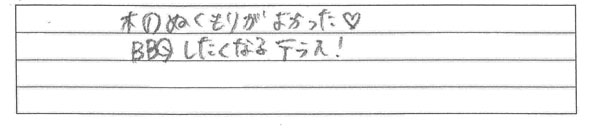 木のぬくもりがよかった♡
BBQしたくなるテラス!